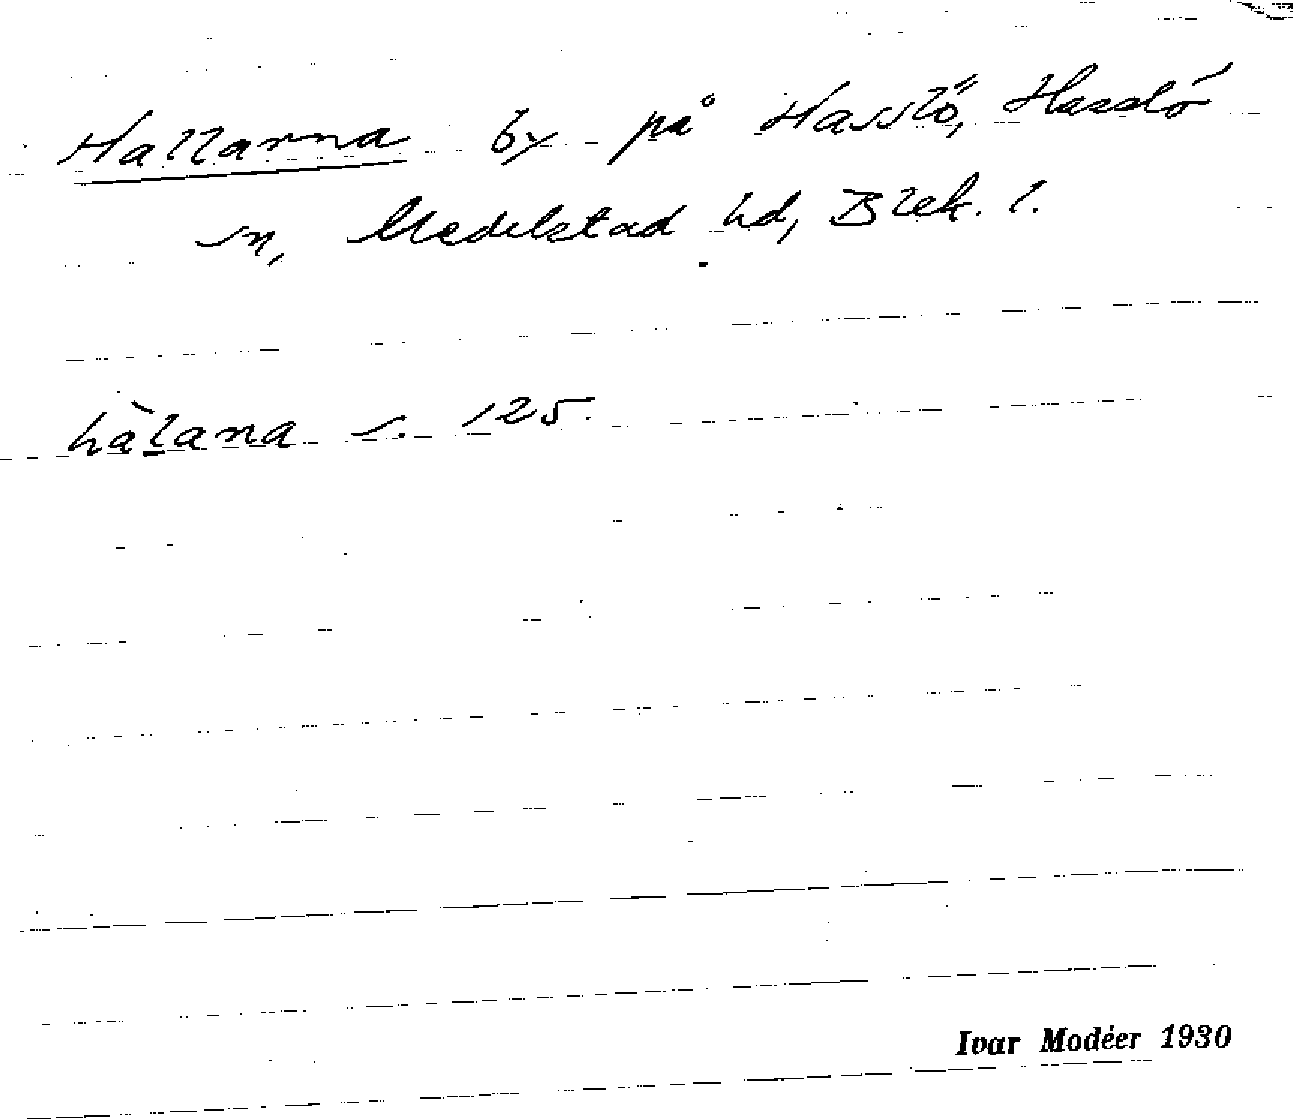 Hallarna by på Hasslö, Hasslö
sn, Medelstad hd, Blek. l.
hàl̠ana s. 125.
Ivar Modéer 1930